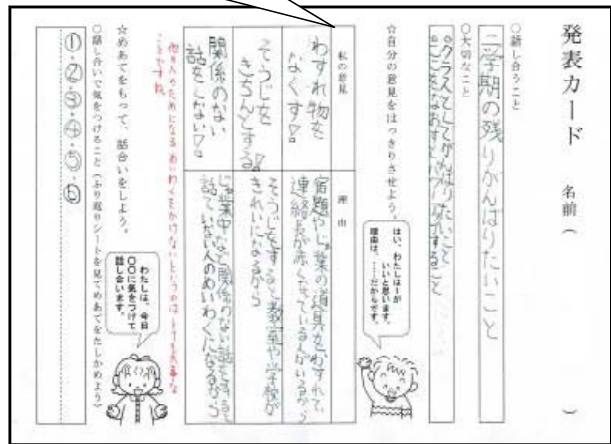 発表カード　名前（　　　）
○話し合うこと
二学期の残りがんばりたいこと
○大切なこと
・クラスとしてがんばりたいこと
・ことをなおすとパワーアップすること
☆自分の意見をはっきりさせよう。
はい、わたしは一が
いいと思います。
理由は、……だからです。
私の意見
理由
わすれ物を
なくす
宿題やじゅ業の道具がわすれて、
連絡長が赤くなっている人がいるから
そうじを
きちんとする
そうじをすると教室や学校が
きれいになるから
関係のない
話をしない
じゅ業中など関係のない話をすると
話ていない人のめいわくになるから
他の人のためになる めいわくをかけないというのはとても大事な
ことですね
☆めあてをもって、話合いをしよう。
わたしは、今日
○○に気をつけて
話し合います。
○話し合いで気をつけること（ふり返りシートを見てめあてをたしかめよう）
①・②・③・④・⑤・⑥